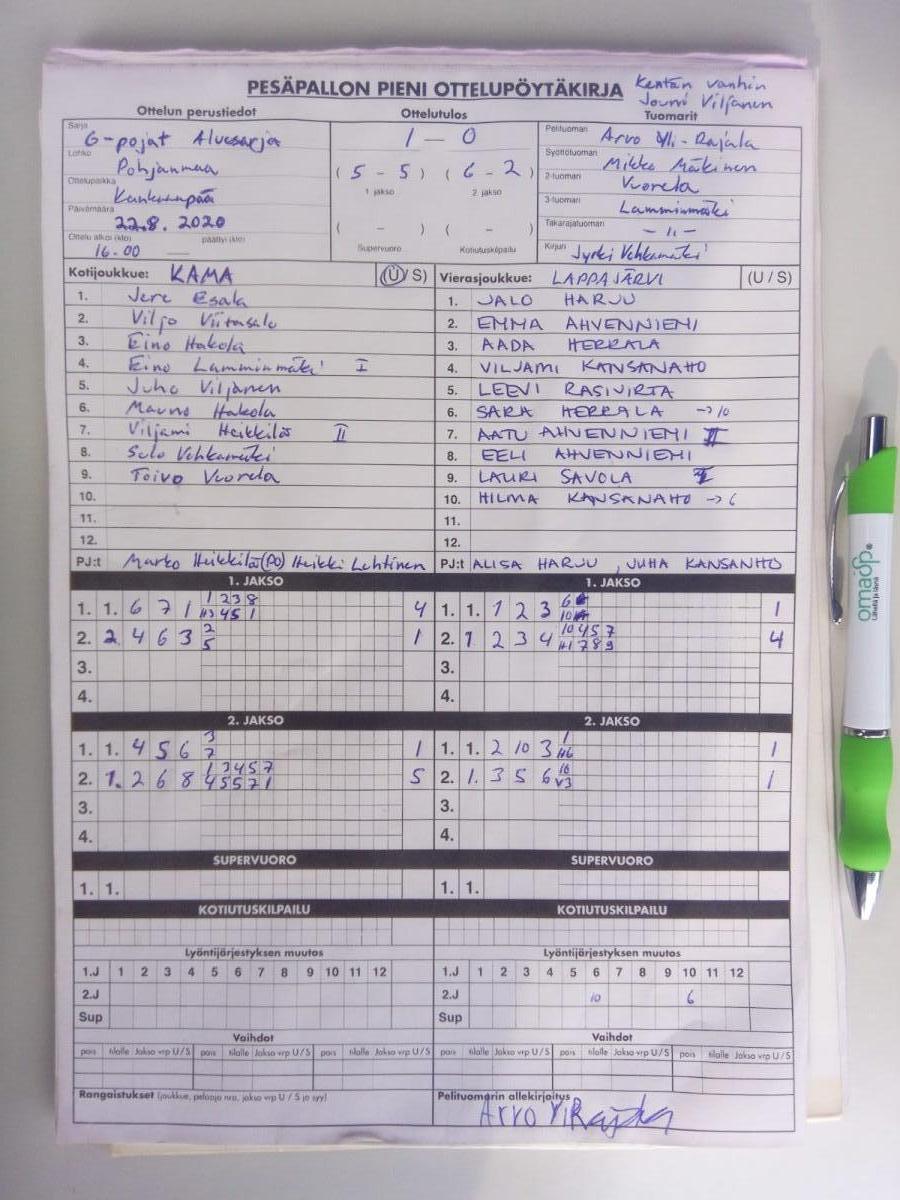 PESÄPALLON PIENI OTTELUPÖYTÄKIRJA
Kentän vanhin
Jouni Viljanen
Ottelun perustiedot
Ottelutulos
Tuomarit
Sarja
G-pojat Aluesarja
Lohko
Pohjanmaa
Ottelupaikka
Kankaanpää
Päivämäärä
22.8. 2020
Ottelu alkoi (klo) päättyi (klo)
16.00 —
1 – 0
( 5 - 5 ) ( 6 - 2 )
1 jakso 2. jakso
( - ) ( - )
Supervuoro Kotiutuskilpailu
Pelituomari Arvo Yli-Rajala
Syöttötuomari Mikko Mäkinen
2-tuomari Vuorela
3-tuomari Lamminmäki
Takarajatuomari - 11 -
Kirjuri Jyrki Vehkamäki
Kotijoukkue: KAMA (U/ S)
1. Jere Esala
2. Viljo Viitasalo
3. Eino Hakola
4. Eino Lamminmäki I
5. Juho Viljanen
6. Mauno Hakola
7. Viljami Heikkilä II
8. Sulo Vehkamäki
9. Toivo Vuorela
10.
11.
12.
PJ:t Marko Heikkilä (PO) Heikki Lehtinen
Vierasjoukkue: LAPPAJÄRVI (U / S)
1. JALO HARJU
2. EMMA AHVENNIEMI
3. AADA HERRALA
4. VILJAMI KANSANAHO
5. LEEVI RASIVIRTA
6. SARA HERRALA -> 10
7. AATU AHVENNIEMI II
8. EELI AHVENNIEMI
9. LAURI SAVOLA I
10. HILMA KANSANAHO -> 6
11.
12.
PJ:t ALISA HARJU , JUHA KANSANHO
1. JAKSO
1. 1. 6 7 1 1 2 3 8 4
H3 4 5 1
2. 2 4 6 3 2 1
5
3.
4.
1. JAKSO
1. 1. 1 2 3 6 1
10
2. 1 2 3 4 10 4 5 7 4
H1 7 8 9
3.
4.
2. JAKSO
1. 1. 4 5 6 3 1
7
2. 1. 2 6 8 1 3 4 5 7 5
4 5 5 7 1
3.
4.
2. JAKSO
1. 1. 2 10 3 1 1
H6
2. 1. 3 5 6 10 1
V3
3.
4.
SUPERVUORO
1. 1.
SUPERVUORO
1. 1.
KOTIUTUSKILPAILU
KOTIUTUSKILPAILU
Lyöntijärjestyksen muutos
1.J 1 2 3 4 5 6 7 8 9 10 11 12
2.J
Sup
Lyöntijärjestyksen muutos
1.J 1 2 3 4 5 6 7 8 9 10 11 12
2.J 10 6
Sup
Vaihdot
pois tilalle Jakso vrp U / S pois tilalle Jakso vrp U / S pois tilalle Jakso vrp U / S
Vaihdot
pois tilalle Jakso vrp U / S pois tilalle Jakso vrp U / S pois tilalle Jakso vrp U / S
Rangaistukset (joukkue, pelaaja nro, jakso vrp U / S ja syy)
Pelituomarin allekirjoitus
omaop®